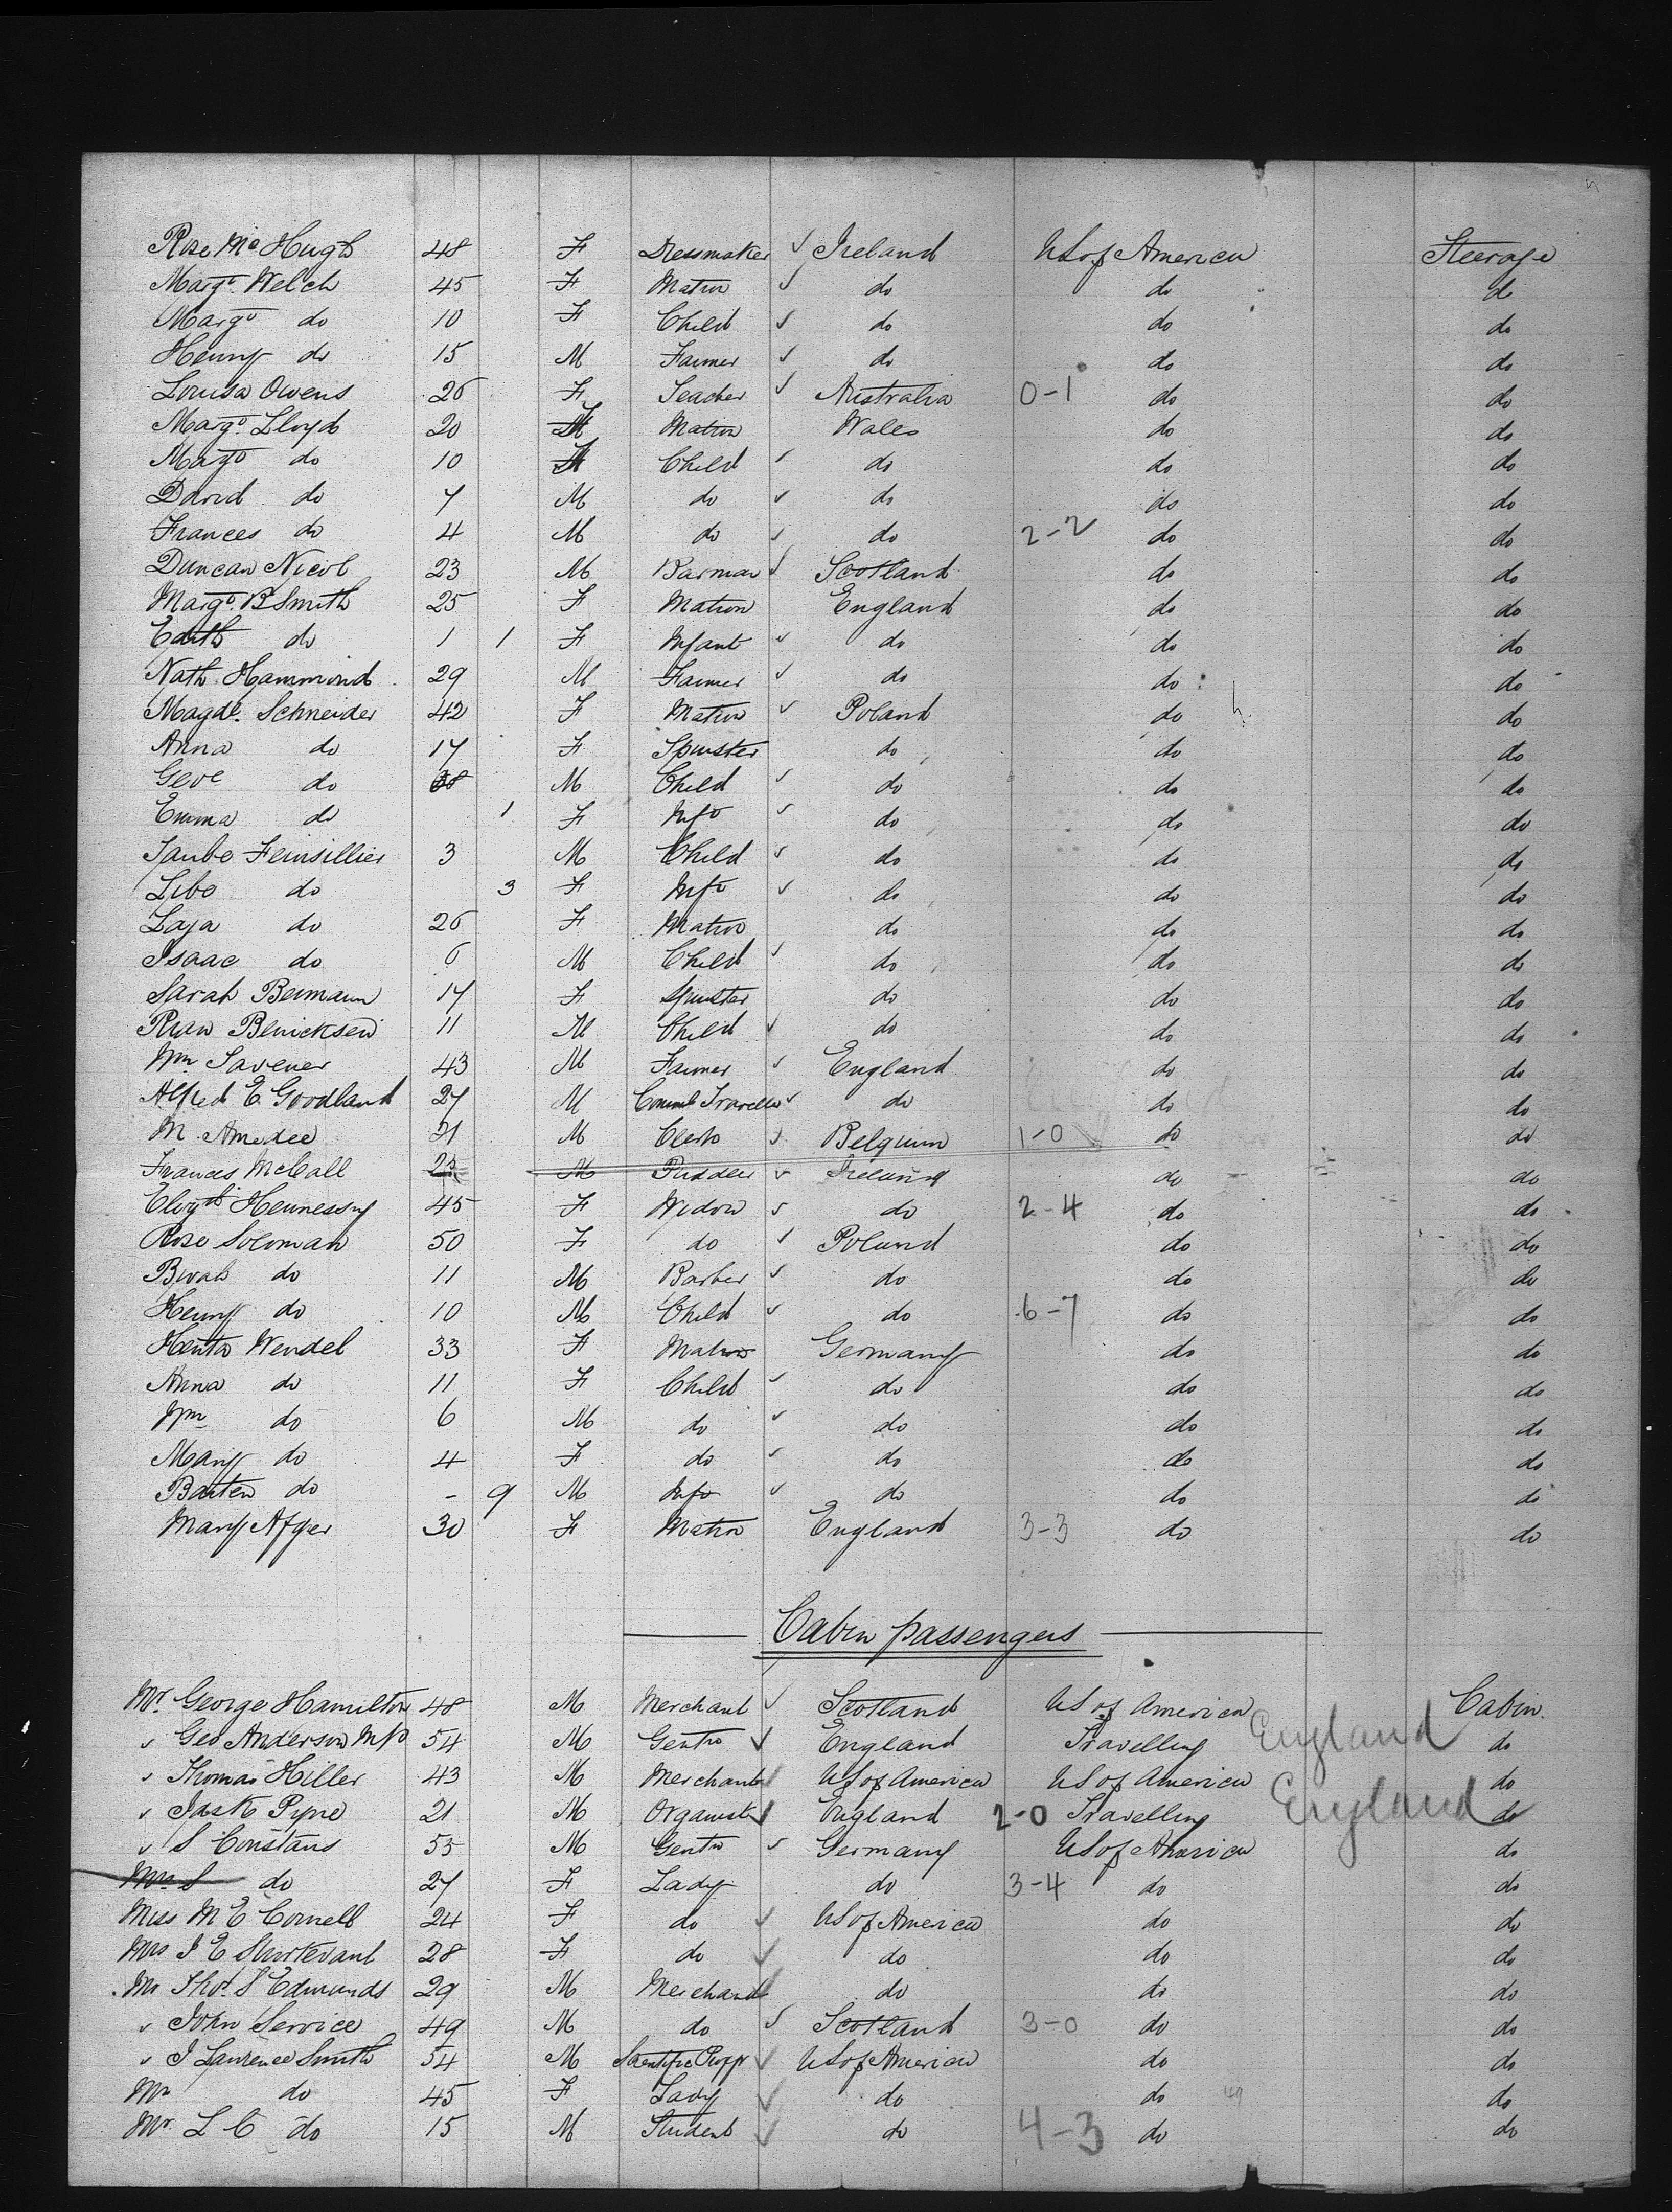 Rose McHugh 48 F Dressmaker ✓ Ireland US of America Steerage
Margt. Welch 45 F Matron ✓ do do do
Margt do 10 F Child ✓ do do do
Henry do 15 M Farmer ✓ do do do
Louisa Owens 26 F Teacher ✓ Australia 0-1 do do
Margt. Lloyd 20 F Matron Wales do do
Margt do 10 F Child ✓ do do do
David do 7 M do ✓ do do do
Frances do 4 M do ✓ do 2-2 do do
Duncan Nicol 23 M Barman ✓ Scotland do do
Margt. B Smith 25 F Matron England do do
Edith do 1 1 F Infant ✓ do do do
Nath. Hammond 29 M Farmer ✓ do do do
Magdl. Schneider 42 F Matron ✓ Poland do do
Anna do 17 F Spinster do do do
Geoe do 8 M Child ✓ do do do
Emma do 1 F Inft ✓ do do do
Taube Feinsillier 3 M Child ✓ do do do
Libe do 3 F Inft ✓ do do do
Laja do 26 F Matron do do do
Isaac do 6 M Child ✓ do do do
Sarah Bermann 17 F Spinster do do do
Benicksen 11 M Child ✓ do do do
Wm Tavener 43 M Farmer ✓ England do do
Alfred E. Goodland 27 M Comml Traveller ✓ do do do
M. Amedee 21 M Clerk ✓ Belgium 1-0 do do
Frances McCall 25 M Puddler ✓ Ireland do do
Elizth Hennessy 45 F Widow ✓ do 2-4 do do
Rose Soloman 50 F do ✓ Poland do do
do 11 M Barber ✓ do do do
Henry do 10 M Child ✓ do 6-7 do do
Wendel 33 F Matron Germany do do
Anna do 11 F Child ✓ do do do
Wm do 6 M do ✓ do do do
Mary do 4 F do ✓ do do do
do - 9 M Inft ✓ do do do
Mary 30 F Matron England 3-3 do do
Cabin passengers
Mr. George Hamilton 48 M Merchant ✓ Scotland US of America Cabin
" Geo Anderson MP 54 M Gentn ✓ England Travelling England do
" Thomas Hiller 43 M Merchant ✓ US of America US of America do
" Pyne 21 M Organist ✓ England 2-0 Travelling England do
" S Constans 53 M Gentn ✓ Germany US of America do
Mrs S do 27 F Lady do 3-4 do do
Miss M E Cornell 24 F do ✓ US of America do do
Mrs J E Sturtevant 28 F do ✓ do do do
Mr Thos. S Edmunds 29 M Merchant do do do
" John Service 49 M do ✓ Scotland 3-0 do do
" J Laurence Smith 54 M Scientific Proff ✓ US of America do do
Mrs do 45 F Lady ✓ do do do
Mr. L C do 15 M Student ✓ do 4-3 do do